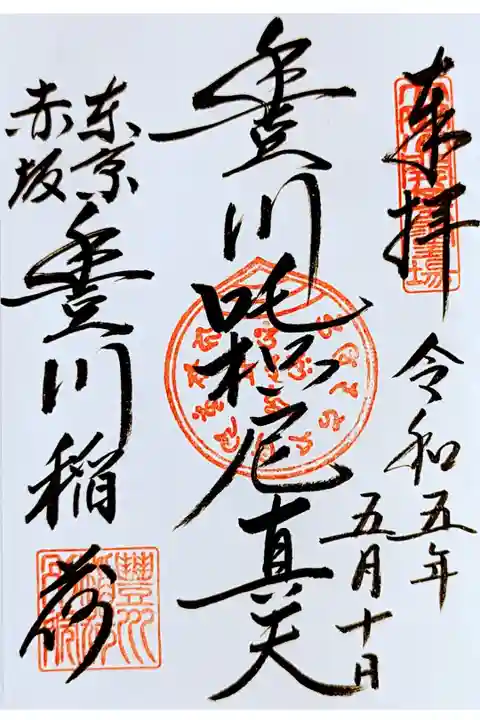 奉拝
令和五年
五月十日
豊川吒枳尼真天
東京
赤坂
豊川稲荷